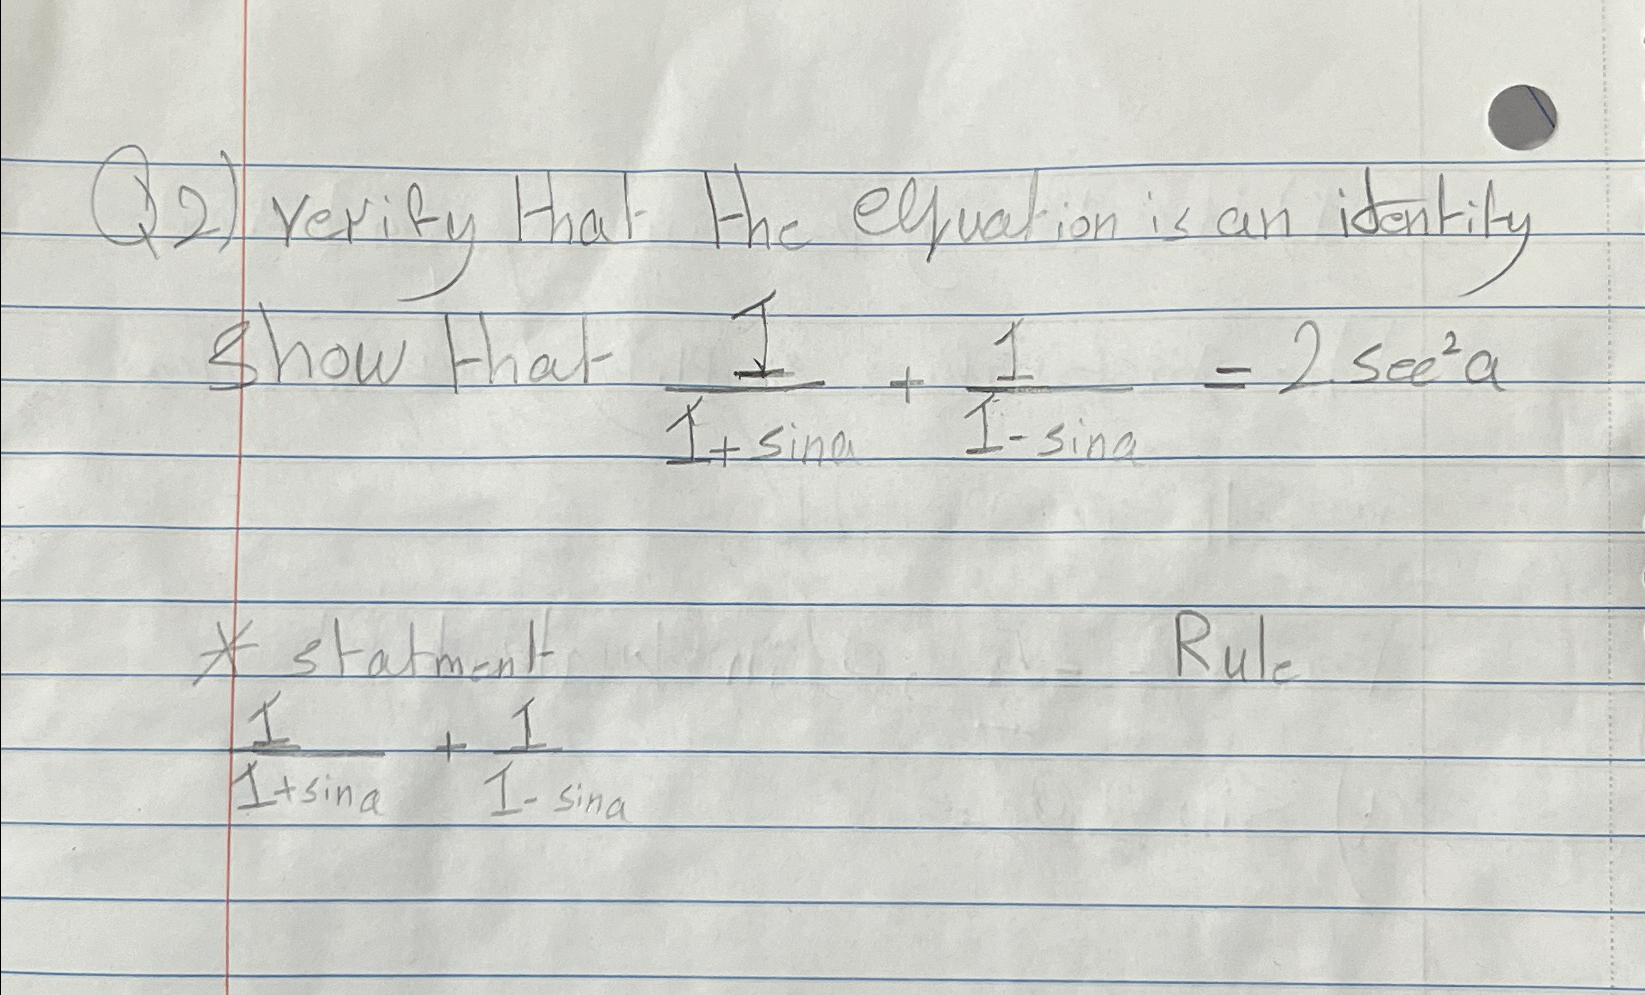 Q2) verify that the equation is an identity
show that 1/(1+sina) + 1/(1-sina) = 2 sec²a
* statment Rule
1/(1+sina) + 1/(1-sina)